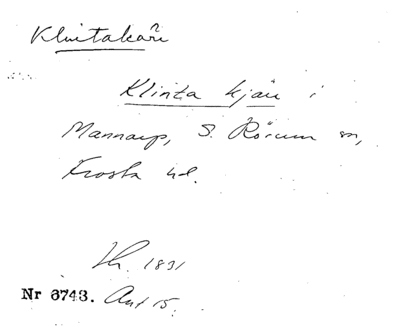 Klintakärr
Klinta kjärr i
Mannarp, S. Rörum sn,
Frosta hd.
Th. 1891
Nr 6743. Ant 15.